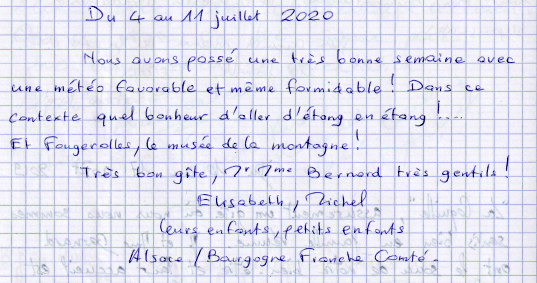 Du 4 au 11 juillet 2020
Nous avons passé une très bonne semaine avec
une météo favorable et même formidable ! Dans ce
contexte quel bonheur d'aller d'étang en étang !....
Et Fougerolles, le musée de la montagne !
Très bon gîte, Mr Mme Bernard très gentils !
Elisabeth, Michel
leurs enfants, petits enfants
Alsace / Bourgogne Franche Comté.